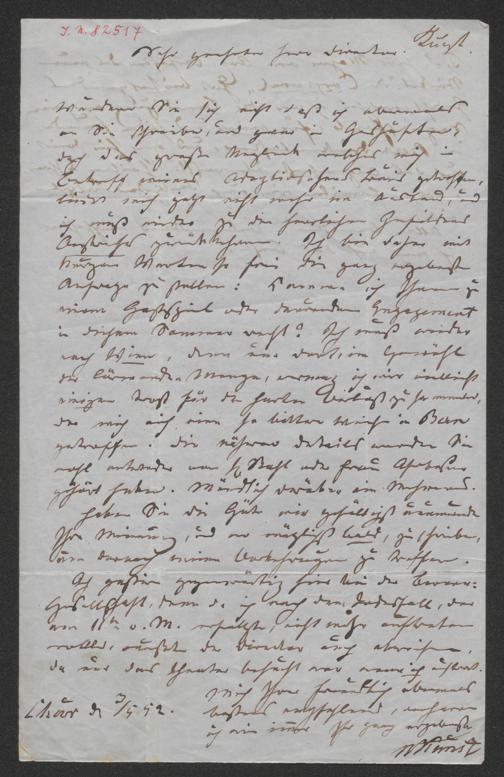 J. N. 82517
Kunst.
Sehr geehrter Herr Direktor.
Wundern Sie sich nicht daß ich abermals
an Sie schreibe, und zwar in Geschäften,
doch das große Unglück welches mich in
Betreff meines getroffen,
bindet mich jetzt nicht mehr im Ausland, und
ich muß wieder zu den herrlichen Gefilden
zurückkehren. Ich bin daher mit
kurzen Worten so frei die ganz ergebenste
Anfrage zu stellen: komme ich Ihnen zu
einem Gastspiel oder dauernden Engagement
in diesem Sommer recht? Ich muß wieder
nach Wien, denn nur dort, im Gewühl
der lärmenden Menge, vermag ich mir vielleicht
einigen Trost für den harten Verlust zu
der mich auf eine so bittere Weise in
getroffen. Die nähern Details werden Sie
wohl entweder von H. Stahl oder Frau
gehört haben. Mündlich darüber ein Mehreres.
Haben Sie die Güte mir gefälligst
Ihre Meinung, und wo möglich bald, zu schreiben,
um darnach meine Vorkehrungen zu treffen.
Ich gastire gegenwärtig hier bei der
Gesellschaft, denn da ich nach dem Todesfall, der
am 11ten v. M. erfolgte, nicht mehr auftreten
wollte, mußte der Direktor auch abreisen,
da nur das Theater besucht war wenn ich auftrat.
Mich Ihnen freundlich abermals
bestens empfehlend, verharre
ich wie immer Ihr ganz ergebenster
Chur d. 3/5 52.
W Kunst